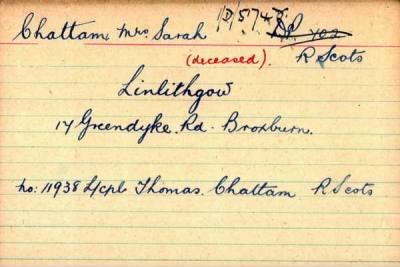 Chattam Mrs. Sarah 1/D/5747
(deceased). R Scots
Linlithgow
14 Greendyke. Rd. Broxburn.
No: 11938 L/cpl Thomas. Chattam R.Scots